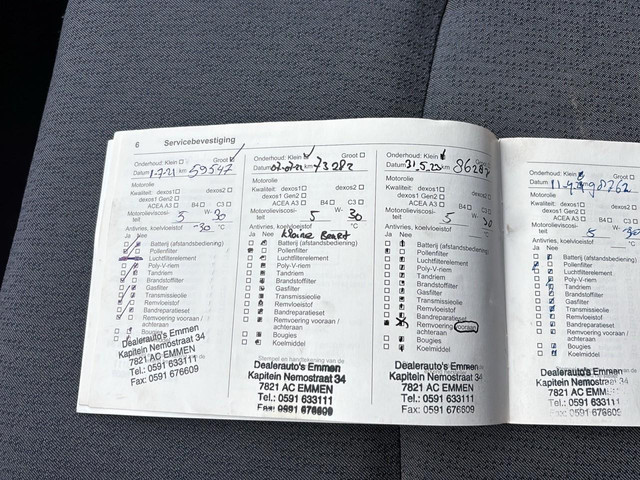 6 Servicebevestiging
Onderhoud: Klein Groot
Datum 1-7-21 km 59547
Motorolie
Kwaliteit: dexos1 dexos2
dexos1 Gen2
ACEA A3 B4 C3
Motorolieviscosi- 5 W- 30
teit
Antivries, koelvloeistof -30 °C
Ja Nee
Batterij (afstandsbediening)
Pollenfilter
Luchtfilterelement
Poly-V-riem
Tandriem
Brandstoffilter
Gasfilter
Transmissieolie
Remvloeistof
Bandreparatieset
Remvoering vooraan /
achteraan
Bougies
Dealerauto's Emmen
Kapitein Nemostraat 34
7821 AC EMMEN
Tel.: 0591 633111
Fax: 0591 676609
Onderhoud: Klein Groot
Datum km 73282
Motorolie
Kwaliteit: dexos1 dexos2
dexos1 Gen2
ACEA A3 B4 C3
Motorolieviscosi- 5 W- 30
teit
Antivries, koelvloeistof °C
Ja Nee Kleine Beurt
Batterij (afstandsbediening)
Pollenfilter
Luchtfilterelement
Poly-V-riem
Tandriem
Brandstoffilter
Gasfilter
Transmissieolie
Remvloeistof
Bandreparatieset
Remvoering vooraan /
achteraan
Bougies
Koelmiddel
Stempel en handtekening van de
Dealerauto's Emmen
Kapitein Nemostraat 34
7821 AC EMMEN
Tel.: 0591 633111
Fax: 0591 676609
Onderhoud: Klein Groot
Datum 31.5.23 km 86287
Motorolie
Kwaliteit: dexos1 dexos2
dexos1 Gen2
ACEA A3 B4 C3
Motorolieviscosi- 5 W- 30
teit
Antivries, koelvloeistof °C
Ja Nee
Batterij (afstandsbediening)
Pollenfilter
Luchtfilterelement
Poly-V-riem
Tandriem
Brandstoffilter
Gasfilter
Transmissieolie
Remvloeistof
Bandreparatieset
Remvoering vooraan
achteraan
Bougies
Koelmiddel
Dealerauto's Emmen
Kapitein Nemostraat 34
7821 AC EMMEN
Tel.: 0591 633111
Fax: 0591 676609
Onderhoud: Klein Groot
Datum 98762
Motorolie
Kwaliteit: dexos1 dexos2
dexos1 Gen2
ACEA A3 B4 C3
Motorolieviscosi- 5
teit
Antivries, koelvloeistof
Ja Nee
Batterij (afstandsbediening)
Pollenfilter
Luchtfilterelement
Poly-V-riem
Tandriem
Brandstoffilter
Gasfilter
Transmissieolie
Remvloeistof
Bandreparatieset
Remvoering vooraan /
achteraan
Bougies
Koelmiddel
Dealerauto's Emmen
Kapitein Nemostraat 34
7821 AC EMMEN
Tel.: 0591 633111
Fax: 0591 676609